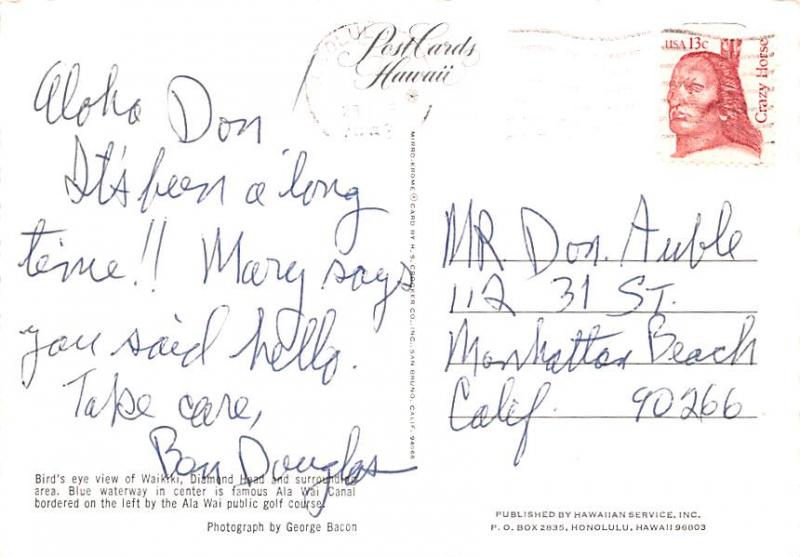 Post Cards
Hawaii
USA 13c
Crazy Horse
Aloha Don
It's been a long
time!! Mary says
you said hello.
Take care,
Douglas
MR. Don. Auble
112 31 ST.
Manhattan Beach
Calif. 90266
MIRRO-KROME ® CARD BY H. S. CROCKER CO., INC., SAN BRUNO, CALIF. 94066
Bird's eye view of Waikiki, Diamond Head and surrounding
area. Blue waterway in center is famous Ala Wai Canal
bordered on the left by the Ala Wai public golf course.
Photograph by George Bacon
PUBLISHED BY HAWAIIAN SERVICE, INC.
P. O. BOX 2835, HONOLULU, HAWAII 96803